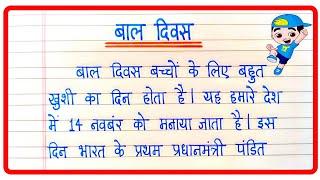 बाल दिवस
बाल दिवस बच्चों के लिए बहुत
खुशी का दिन होता है। यह हमारे देश
में 14 नवबंर को मनाया जाता है। इस
दिन भारत के प्रथम प्रधानमंत्री पंडित